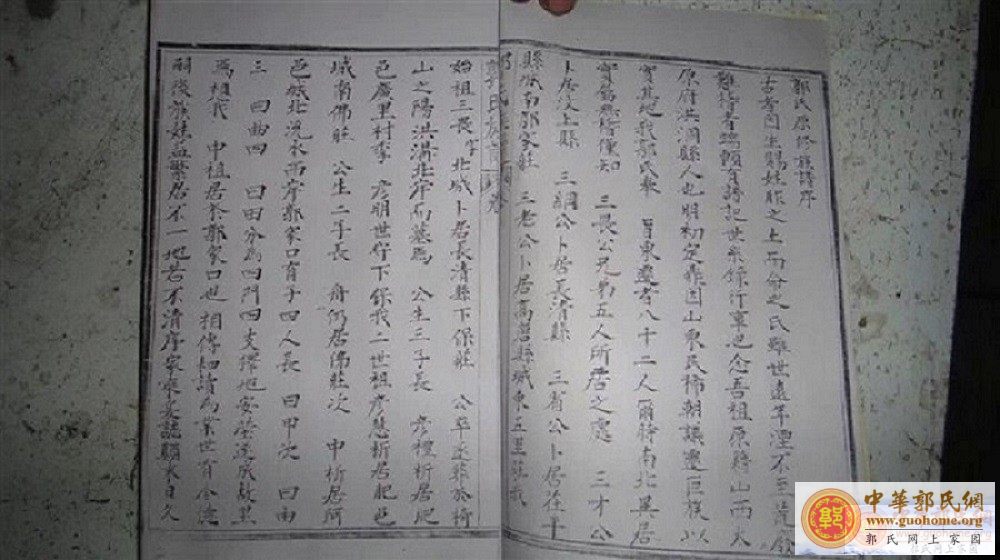 郭氏原修族譜序
古者因生賜姓胙之土而命之氏雖世遠年湮不至荒
難稽者端賴有譜記世系錄行事也念吾祖原籍山西太
原府洪洞縣人也明初定鼎因山東民稀朝議遷巨族以
實其地我郭氏奉 旨東遷者八十二人爾時南北異居
實屬無 知 三長公兄弟五人所居之處 三才公
卜居汶上縣 三綱公卜居長清縣 三省公卜居茌平
縣城南郭家莊 三老公卜居高 縣城東五里莊我
始祖三畏 北城卜居長清縣下保莊 公卒 葬於
山之陽洪溝北岸而墓焉 公生三子長 彥禮析居肥
邑 里村李 彥明世 下保我二世祖彥慧析居肥邑
城南佛莊 公生二子長 舟仍居佛莊次 中析居阿
邑城北流水西岸郭家口育子四人長 曰甲次 曰由
三 曰曲四 曰田分為四門四支 地安 遂成故里
焉 祖我 中 居於郭家口也相傳 讀為業世育令德
嗣後族姓益繁居不一地若不清序家乘 日久
中華郭氏網
www.guohome.org
郭氏网上家園